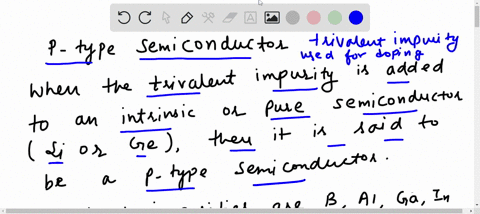 P-type semiconductor trivalent impurity
used for doping
When the trivalent impurity is added
to an intrinsic or pure semiconductor
(Si or Ge), then it is said to
be a p-type semiconductor.
impurities are B, Al, Ga, In